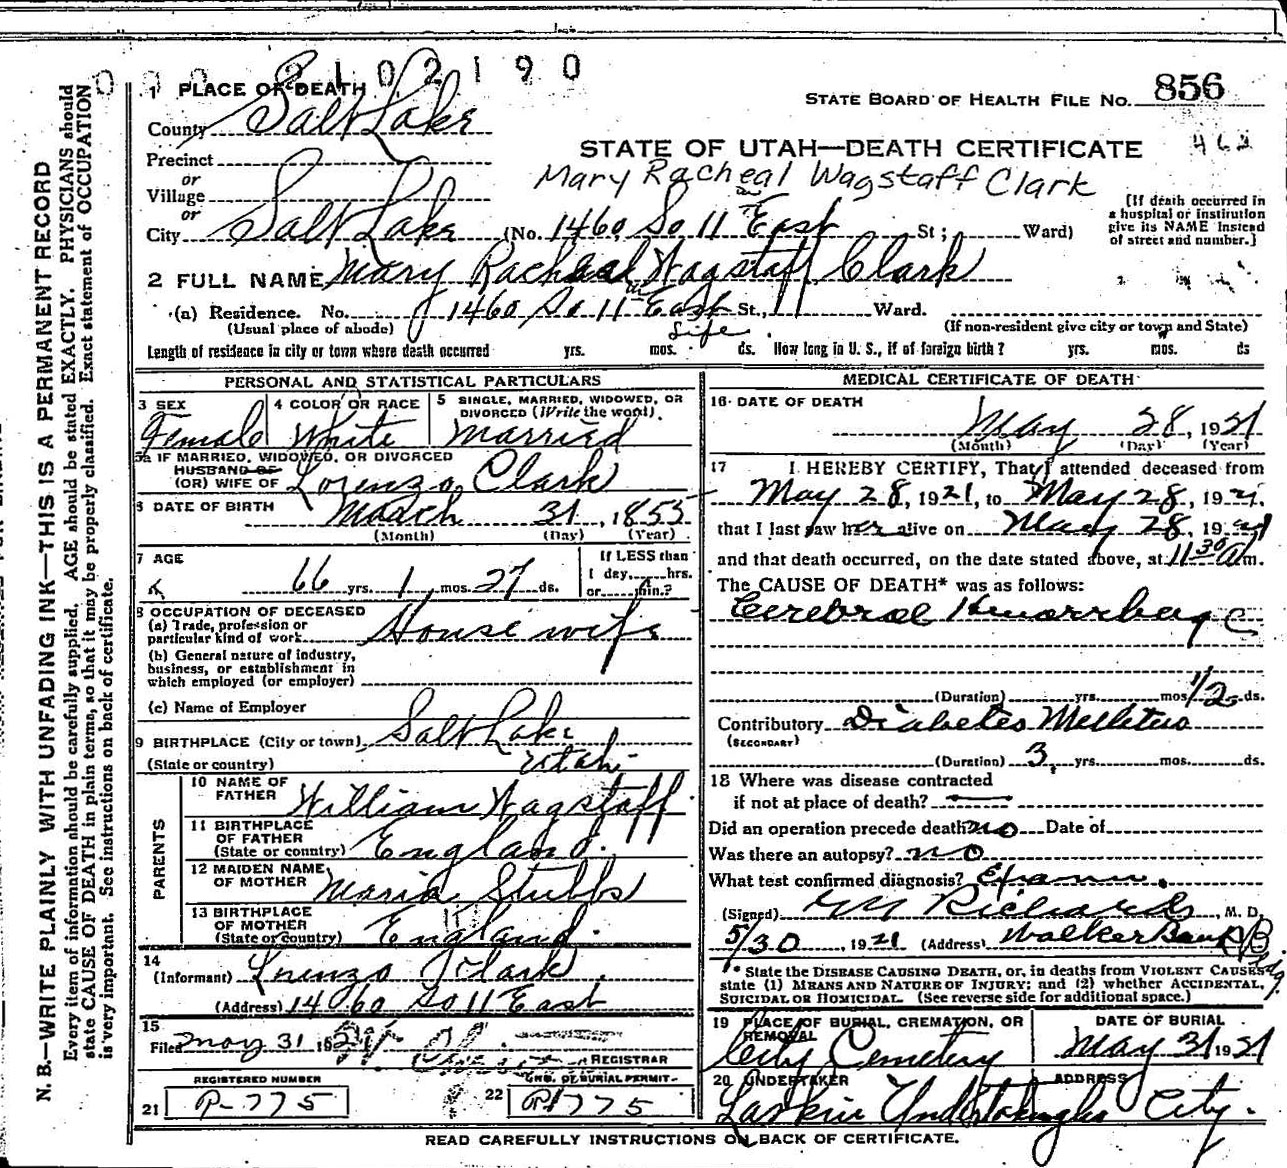 2102190
1 PLACE OF DEATH
STATE BOARD OF HEALTH FILE No. 856
County Salt Lake
STATE OF UTAH—DEATH CERTIFICATE 462
Precinct
or
Mary Racheal Wagstaff Clark
Village
or
City Salt Lake (No. 1460 So 11 East St; Ward)
[If death occurred in
a hospital or institution
give its NAME instead
of street and number.]
2 FULL NAME Mary Racheal Wagstaff Clark
(a) Residence. No. 1460 So 11 East St., Ward.
(Usual place of abode) (If non-resident give city or town and State)
Length of residence in city or town where death occurred Life yrs. mos. ds. How long in U. S., if of foreign birth? yrs. mos. ds
PERSONAL AND STATISTICAL PARTICULARS
3 SEX Female
4 COLOR OR RACE White
5 SINGLE, MARRIED, WIDOWED, OR
DIVORCED (Write the word).
Married
5a IF MARRIED, WIDOWED, OR DIVORCED
HUSBAND OF
(OR) WIFE OF Lorenzo Clark
6 DATE OF BIRTH March 31, 1855
(Month) (Day) (Year)
7 AGE
66 yrs. 1 mos. 27 ds.
If LESS than
1 day, hrs.
or min.?
8 OCCUPATION OF DECEASED
(a) Trade, profession or
particular kind of work Housewife
(b) General nature of industry,
business, or establishment in
which employed (or employer)
(c) Name of Employer
9 BIRTHPLACE (City or town) Salt Lake
(State or country) Utah
PARENTS
10 NAME OF
FATHER William Wagstaff
11 BIRTHPLACE
OF FATHER
(State or country) England.
12 MAIDEN NAME
OF MOTHER Maria Stubbs
13 BIRTHPLACE
OF MOTHER
(State or country) England.
14
(Informant) Lorenzo Clark
(Address) 1460 So 11 East
15
Filed May 31 1921 REGISTRAR
REGISTERED NUMBER
21 P-775
NO. OF BURIAL PERMIT
22 P1775
MEDICAL CERTIFICATE OF DEATH
16 DATE OF DEATH
May 28, 1921
(Month) (Day) (Year)
17 I HEREBY CERTIFY, That I attended deceased from
May 28, 1921, to May 28, 1921.
that I last saw her alive on May 28, 1921
and that death occurred, on the date stated above, at 11 30 a m.
The CAUSE OF DEATH* was as follows:
Cerebral Hemorrhage
(Duration) yrs. mos. 1/2 ds.
Contributory Diabetes Mellitus
(SECONDARY)
(Duration) 3 yrs. mos. ds.
18 Where was disease contracted
if not at place of death?
Did an operation precede death? no Date of
Was there an autopsy? no
What test confirmed diagnosis? Exam.
(Signed) Richards, M. D.
5/30, 1921 (Address) Walker Bank Bldg.
* State the DISEASE CAUSING DEATH, or, in deaths from VIOLENT CAUSES,
state (1) MEANS AND NATURE OF INJURY; and (2) whether ACCIDENTAL,
SUICIDAL OR HOMICIDAL. (See reverse side for additional space.)
19 PLACE OF BURIAL, CREMATION, OR
REMOVAL
City Cemetery
DATE OF BURIAL
May 31 1921
20 UNDERTAKER ADDRESS
Larkin Undertaking Co City.
READ CAREFULLY INSTRUCTIONS ON BACK OF CERTIFICATE.
N. B.—WRITE PLAINLY WITH UNFADING INK—THIS IS A PERMANENT RECORD
Every item of information should be carefully supplied. AGE should be stated EXACTLY. PHYSICIANS should
state CAUSE OF DEATH in plain terms, so that it may be properly classified. Exact statement of OCCUPATION
is very important. See instructions on back of certificate.